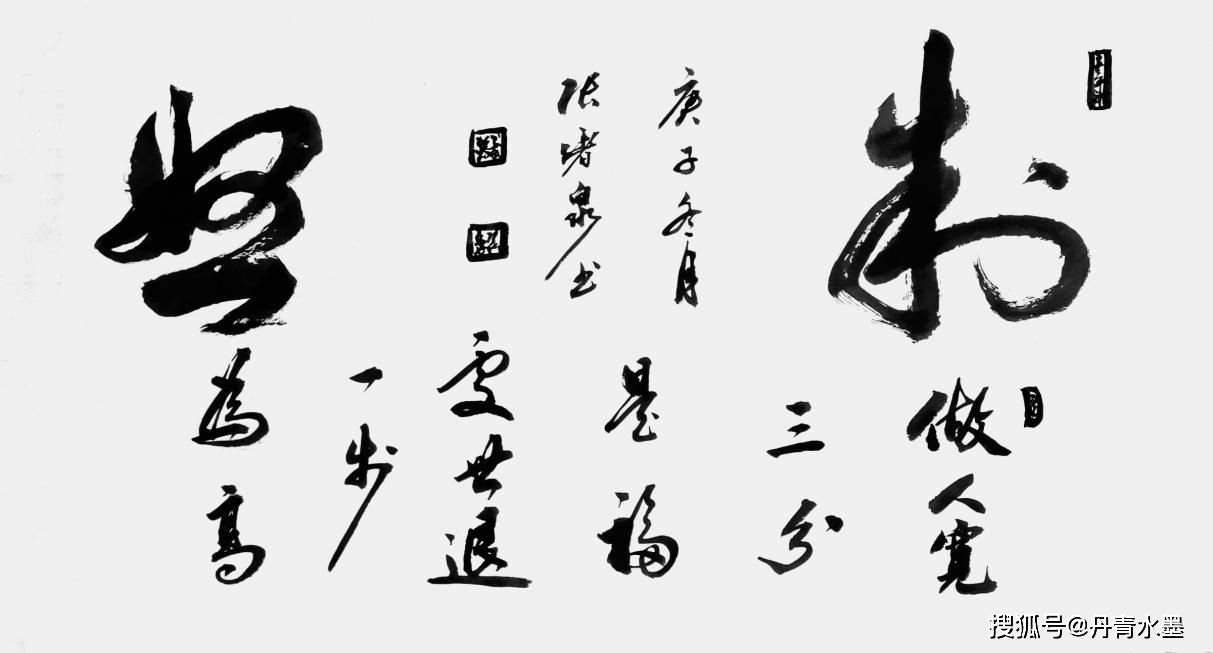 制怒
做人寬
三分
是福
處世退
一步
為高
庚子冬月
张 泉书
搜狐号@丹青水墨